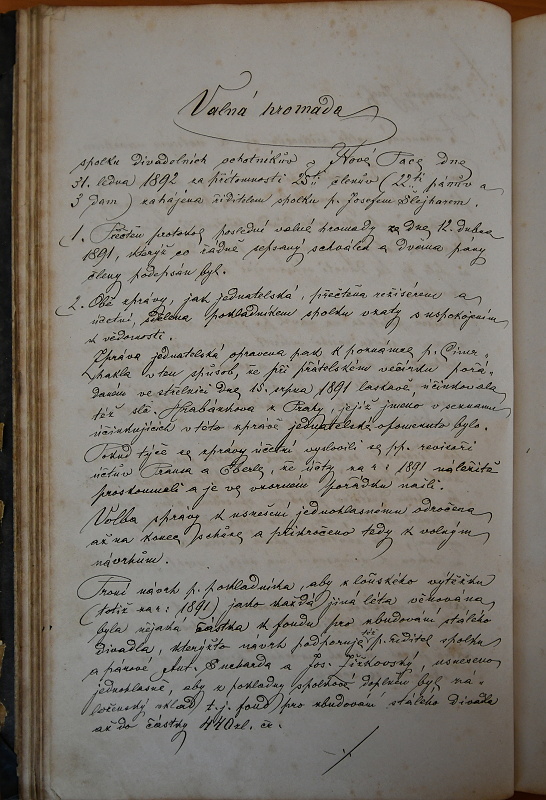 Valná hromada
spolku divadelních ochotníkův v Nové Pace dne
31. ledna 1892 za přítomnosti 25ti členův (22ti pánův a
3 dam) zahájena ředitelem spolku p. Josefem Šlejharem.
1. Přečten protokol poslední valné hromady ze dne 12. dubna
1891, kterýž co řádně sepsaný schválen a dvěma pány
členy podepsán byl.
2. Obě zprávy, jak jednatelská, přečtena režisérem a
účetní, sdělena pokladníkem spolku vzaty s uspokojením
k vědomosti.
Zpráva jednatelská opravena pak k poznámce p.
v ten způsob, že při přátelském večírku pořá-
daném ve střelnici dne 15. srpna 1891 laskavě účinkovala
též slč. Hrabánkova z Prahy, jejíž jméno v seznamu
účinkujících v této zprávě jednatelské opomenuto bylo.
Pokud týče se zprávy účetní vyslovili se pp. revisoři
účtův Franza a Eberle, že účty za r. 1891 náležitě
proskoumali a je ve vzorném pořádku našli.
Volba správy k usnešení jednohlasnému odročena
až na konec schůze a přikročeno tedy k volným
návrhům.
První návrh p. pokladníka, aby z loňského výtěžku
(totiž za r. 1891) jako každá jiná léta věnována
byla nějaká částka k fondu pro zbudování stálého
divadla, kterýžto návrh podporuje též p. ředitel spolku
a pánové Ant. Sucharda a Jos. Jirkovský, usneseno
jednohlasně, aby z pokladny spolkové doplněn byl zá-
loženský vklad t. j. fond pro zbudování stálého divadla
až do částky 440 zl. čr.